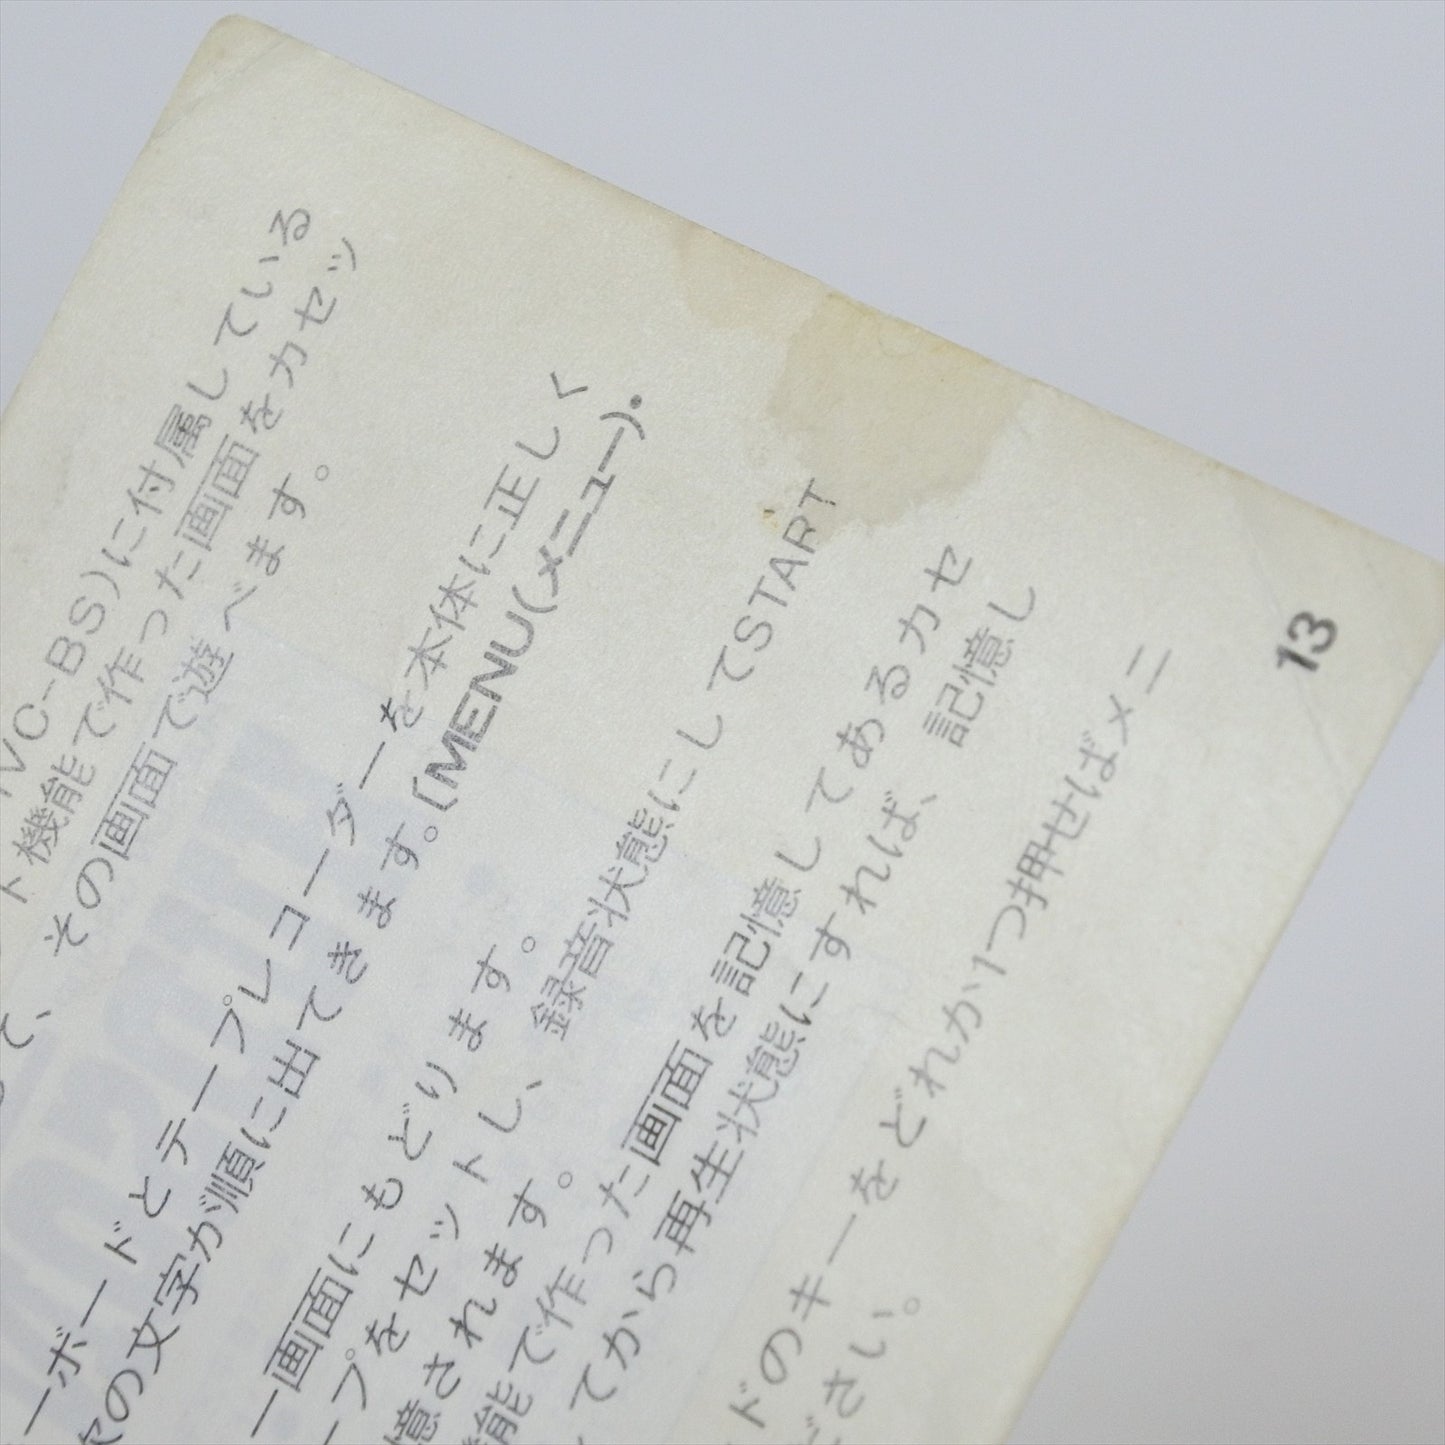 VC-BS)に付属している
ト機能で作った画面をカセッ
て、その画面で遊べます。
ーボードとテープレコーダーを本体に正しく
次の文字が順に出てきます。(MENU(メニュー)・
ー画面にもどります。
ープをセットし、録音状態にしてSTART
憶されます。
機能で作った画面を記憶してあるカセ
てから再生状態にすれば、記憶し
ドのキーをどれか1つ押せばメニ
ださい。
13